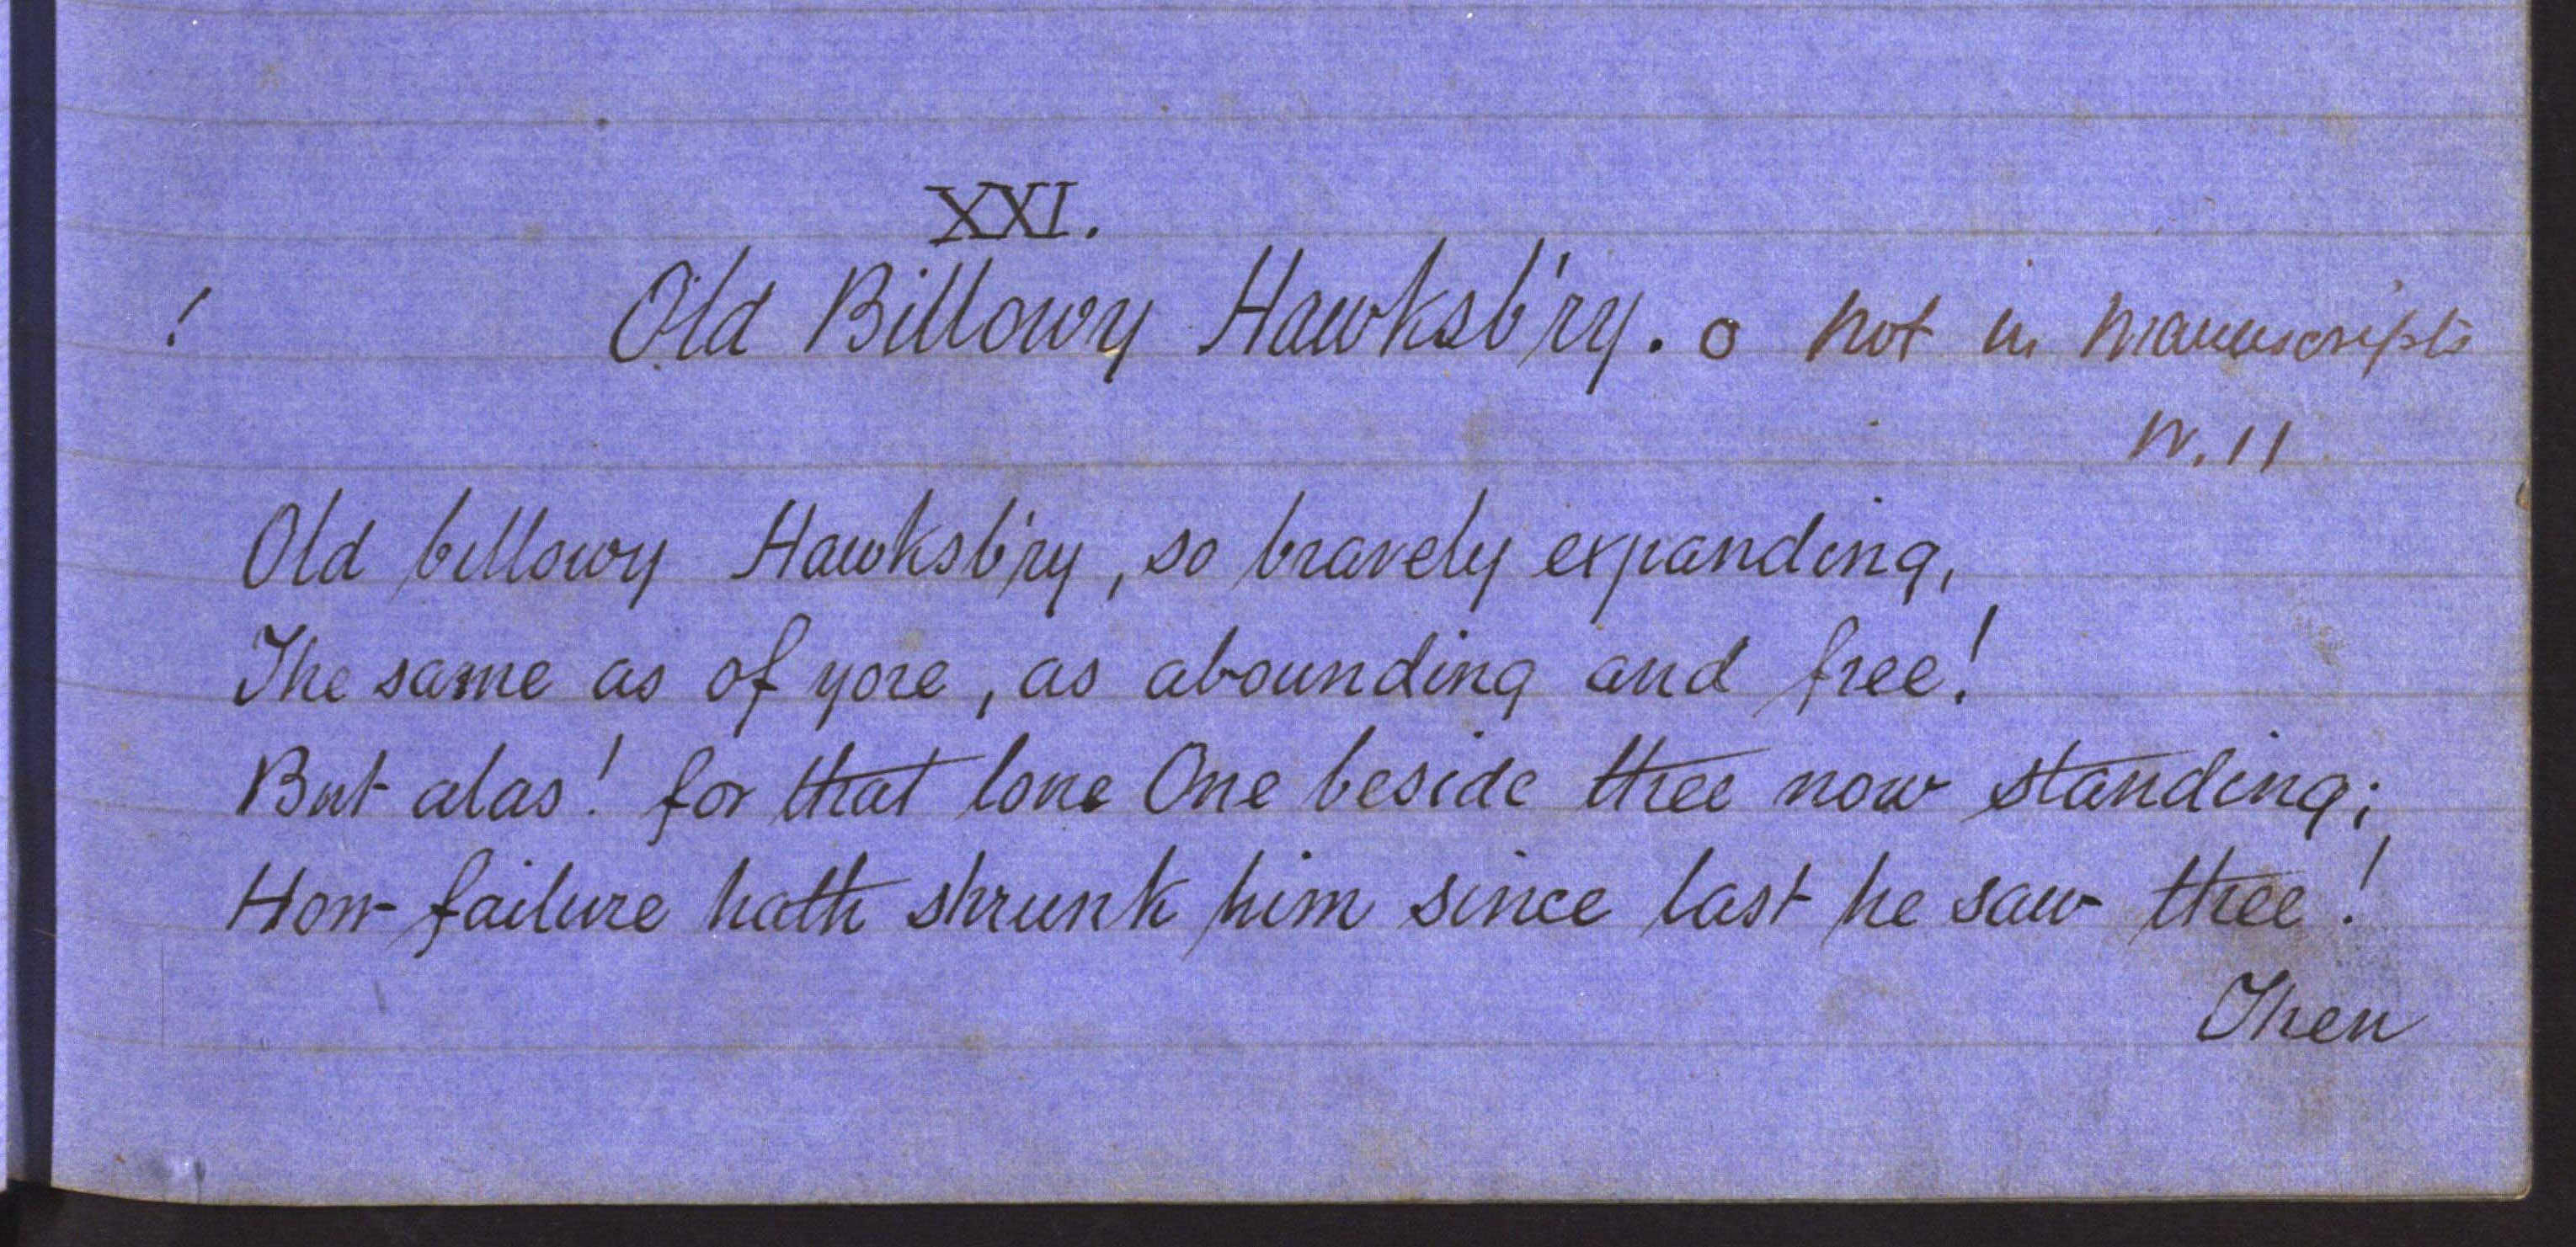 XXI.
! Old Billowy Hawksb'ry. o not in manuscripts
N. 11
Old billowy Hawksb'ry, so bravely expanding,
The same as of yore, as abounding and free!
But alas! for that lone One beside thee now standing;
How failure hath shrunk him since last he saw thee!
Then